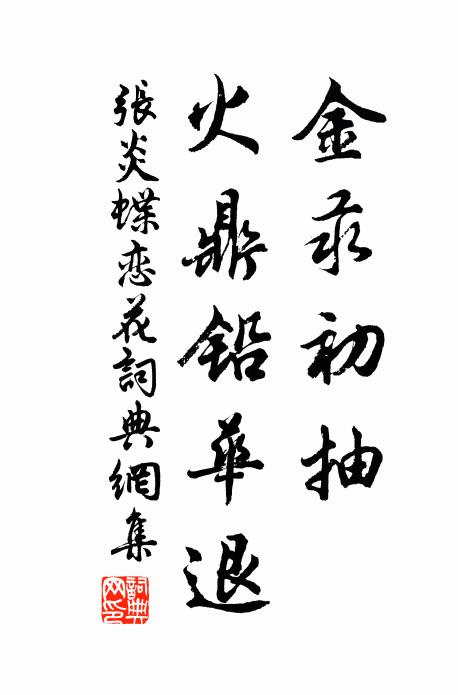 金汞初抽
火鼎鉛華退
張炎蝶恋花詞典網集
詞典网印